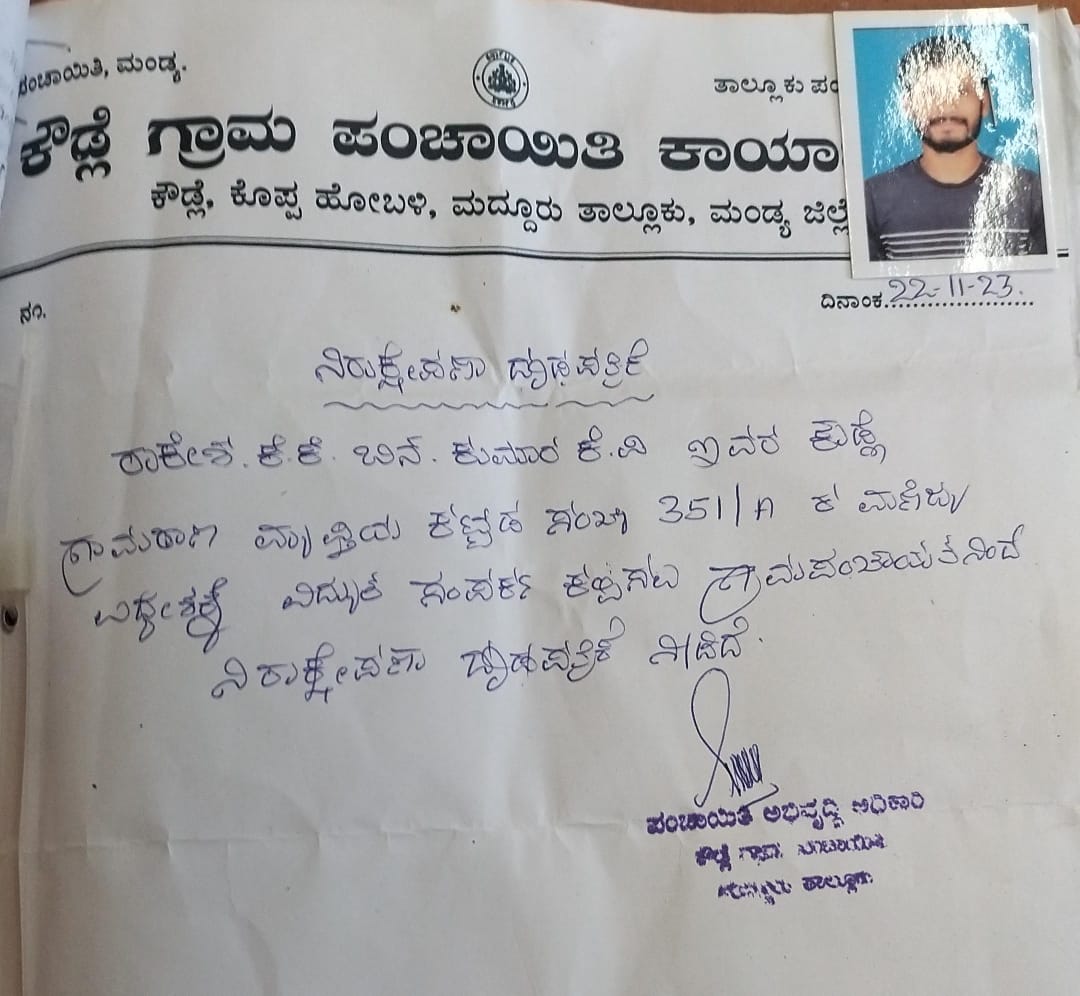 ಪಂಚಾಯಿತಿ, ಮಂಡ್ಯ.
ತಾಲ್ಲೂಕು ಪಂ
ಕೌಡ್ಲೆ ಗ್ರಾಮ ಪಂಚಾಯಿತಿ ಕಾರ್ಯಾ
ಕೌಡ್ಲೆ, ಕೊಪ್ಪ ಹೋಬಳಿ, ಮದ್ದೂರು ತಾಲ್ಲೂಕು, ಮಂಡ್ಯ ಜಿಲ್ಲೆ
ನಂ.
ದಿನಾಂಕ. 22-11-23.
ನಿರುಕ್ಷೇಪಣಾ ಧೃಢಪತ್ರಿಕೆ
ರಾಕೇಶ. ಕೆ.ಕೆ. ಬಿನ್. ಕುಮಾರ ಕೆ.ವಿ ಇವರ ಕೌಡ್ಲೆ
ಗ್ರಾಮಠಾಣ ವ್ಯಾಪ್ತಿಯ ಕಟ್ಟಡ ಸಂಖ್ಯೆ 351/A ಕ ವಾಣಿಜ್ಯ
ಉದ್ದೇಶಕ್ಕೆ ವಿದ್ಯುತ್ ಸಂಪರ್ಕ ಕಲ್ಪಿಸಲು ಗ್ರಾಮಪಂಚಾಯತನಿಂದ
ನಿರಾಕ್ಷೇಪಣಾ ಧೃಢಪತ್ರಿಕೆ ನೀಡಿದೆ.
ಪಂಚಾಯಿತಿ ಅಭಿವೃದ್ಧಿ ಅಧಿಕಾರಿ
ಕೌಡ್ಲೆ ಗ್ರಾಮ ಪಂಚಾಯಿತಿ
ಮದ್ದೂರು ತಾಲ್ಲೂಕು